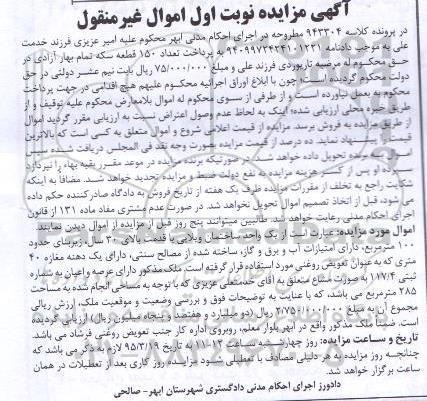 آگهی مزایده نوبت اول اموال غیر منقول
در پرونده کلاسه ۹۴۳۳۰۴ مطروحه در اجرای احکام مدنی ابهر محکوم علیه امیر عزیزی فرزند خدمت
علی به موجب دادنامه ۹۴۰۹۹۷۲۴۲۴۱۰۱۲۲۱ به پرداخت تعداد ۱۵۰ قطعه سکه تمام بهار آزادی در
حق محکوم له مرضیه تاریوردی فرزند علی و مبلغ ۷۵/۰۰۰/۰۰۰ ریال بابت نیم عشر دولتی در حق
دولت محکوم گردیده است؛ چون با ابلاغ اوراق اجرائیه محکوم علیهم هیچ اقدامی در جهت پرداخت
محکوم به بعمل نیاورده است و از طرفی از سوی محکوم له اموال بلامعارض محکوم علیه توقیف و از
طریق خبره محلی ارزیابی شده؛ اینک به لحاظ عدم وصول اعتراض نسبت به ارزیابی مقرر گردید اموال
از طریق مزایده به فروش برسد. مزایده از قیمت اعلامی شروع و اموال متعلق به کسی است که بالاترین
قیمت را پیشنهاد نماید. ده درصد از قیمت مزایده بصورت وجه نقد فی المجلس دریافت شده سپس
اموال به برنده تحویل داده خواهد شد. در صورتیکه برنده مزایده در موعد مقرر بقیه بهاء را نپردازد
سپرده او پس از کسر هزینه مزایده به نفع دولت ضبط و مزایده تجدید خواهد شد. مضافا به اینکه
شکایت راجع به تخلف از مقررات مزایده ظرف یک هفته از تاریخ فروش به دادگاه صادرکننده حکم داده
می شود، قبل از اتخاذ تصمیم اموال تحویل نخواهد شد. در صورت عدم مشتری مفاد ماده ۱۳۱ از قانون
اجرای احکام مدنی رعایت خواهد شد. طالبین میتوانند پنج روز قبل از مزایده از اموال دیدن نمایند.
اموال مورد مزایده: عبارتست از یک واحد ساختمان ویلایی با قدمت بالای ۳۰ سال زیربنای حدود
۱۰۰ مترمربع، دارای امتیازات آب و برق و گاز، ساخته شده از مصالح سنتی، دارای یک دهنه مغازه ۴۰
متری که به عنوان تعویض روغنی مورد استفاده قرار گرفته است. ملک مذکور دارای عرصه و اعیان به شماره
ثبتی ۱۱۷/۴ به صورت مشاع متعلق به آقای خدمتعلی عزیزی که با توجه به مساحی انجام شده به مساحت
۲۸۵ مترمربع می باشد، که با عنایت به توضیحات فوق و بررسی وضعیت و موقعیت ملک، ارزش ریالی
مجموع آن به مبلغ ۲/۷۵۰/۰۰۰/۰۰۰ ریال (دو میلیارد و هفتصد و پنجاه میلیون ریال) ارزیابی گردیده
است. ضمنا ملک مذکور واقع در ابهر بلوار معلم، روبروی اداره کار جنب تعویض روغنی فرشاد می باشد.
تاریخ و ساعت مزایده: روز چهارشنبه ساعت ۱۲-۱۱ به تاریخ ۹۵/۳/۱۹ لازم به ذکر می باشد که
چنانچه روز مزایده به هر دلیلی مصادف با تعطیلی شود مزایده روز کاری بعد از تعطیلات در همان
ساعت برگزار خواهد شد.
دادورز اجرای احکام مدنی دادگستری شهرستان ابهر- صالحی